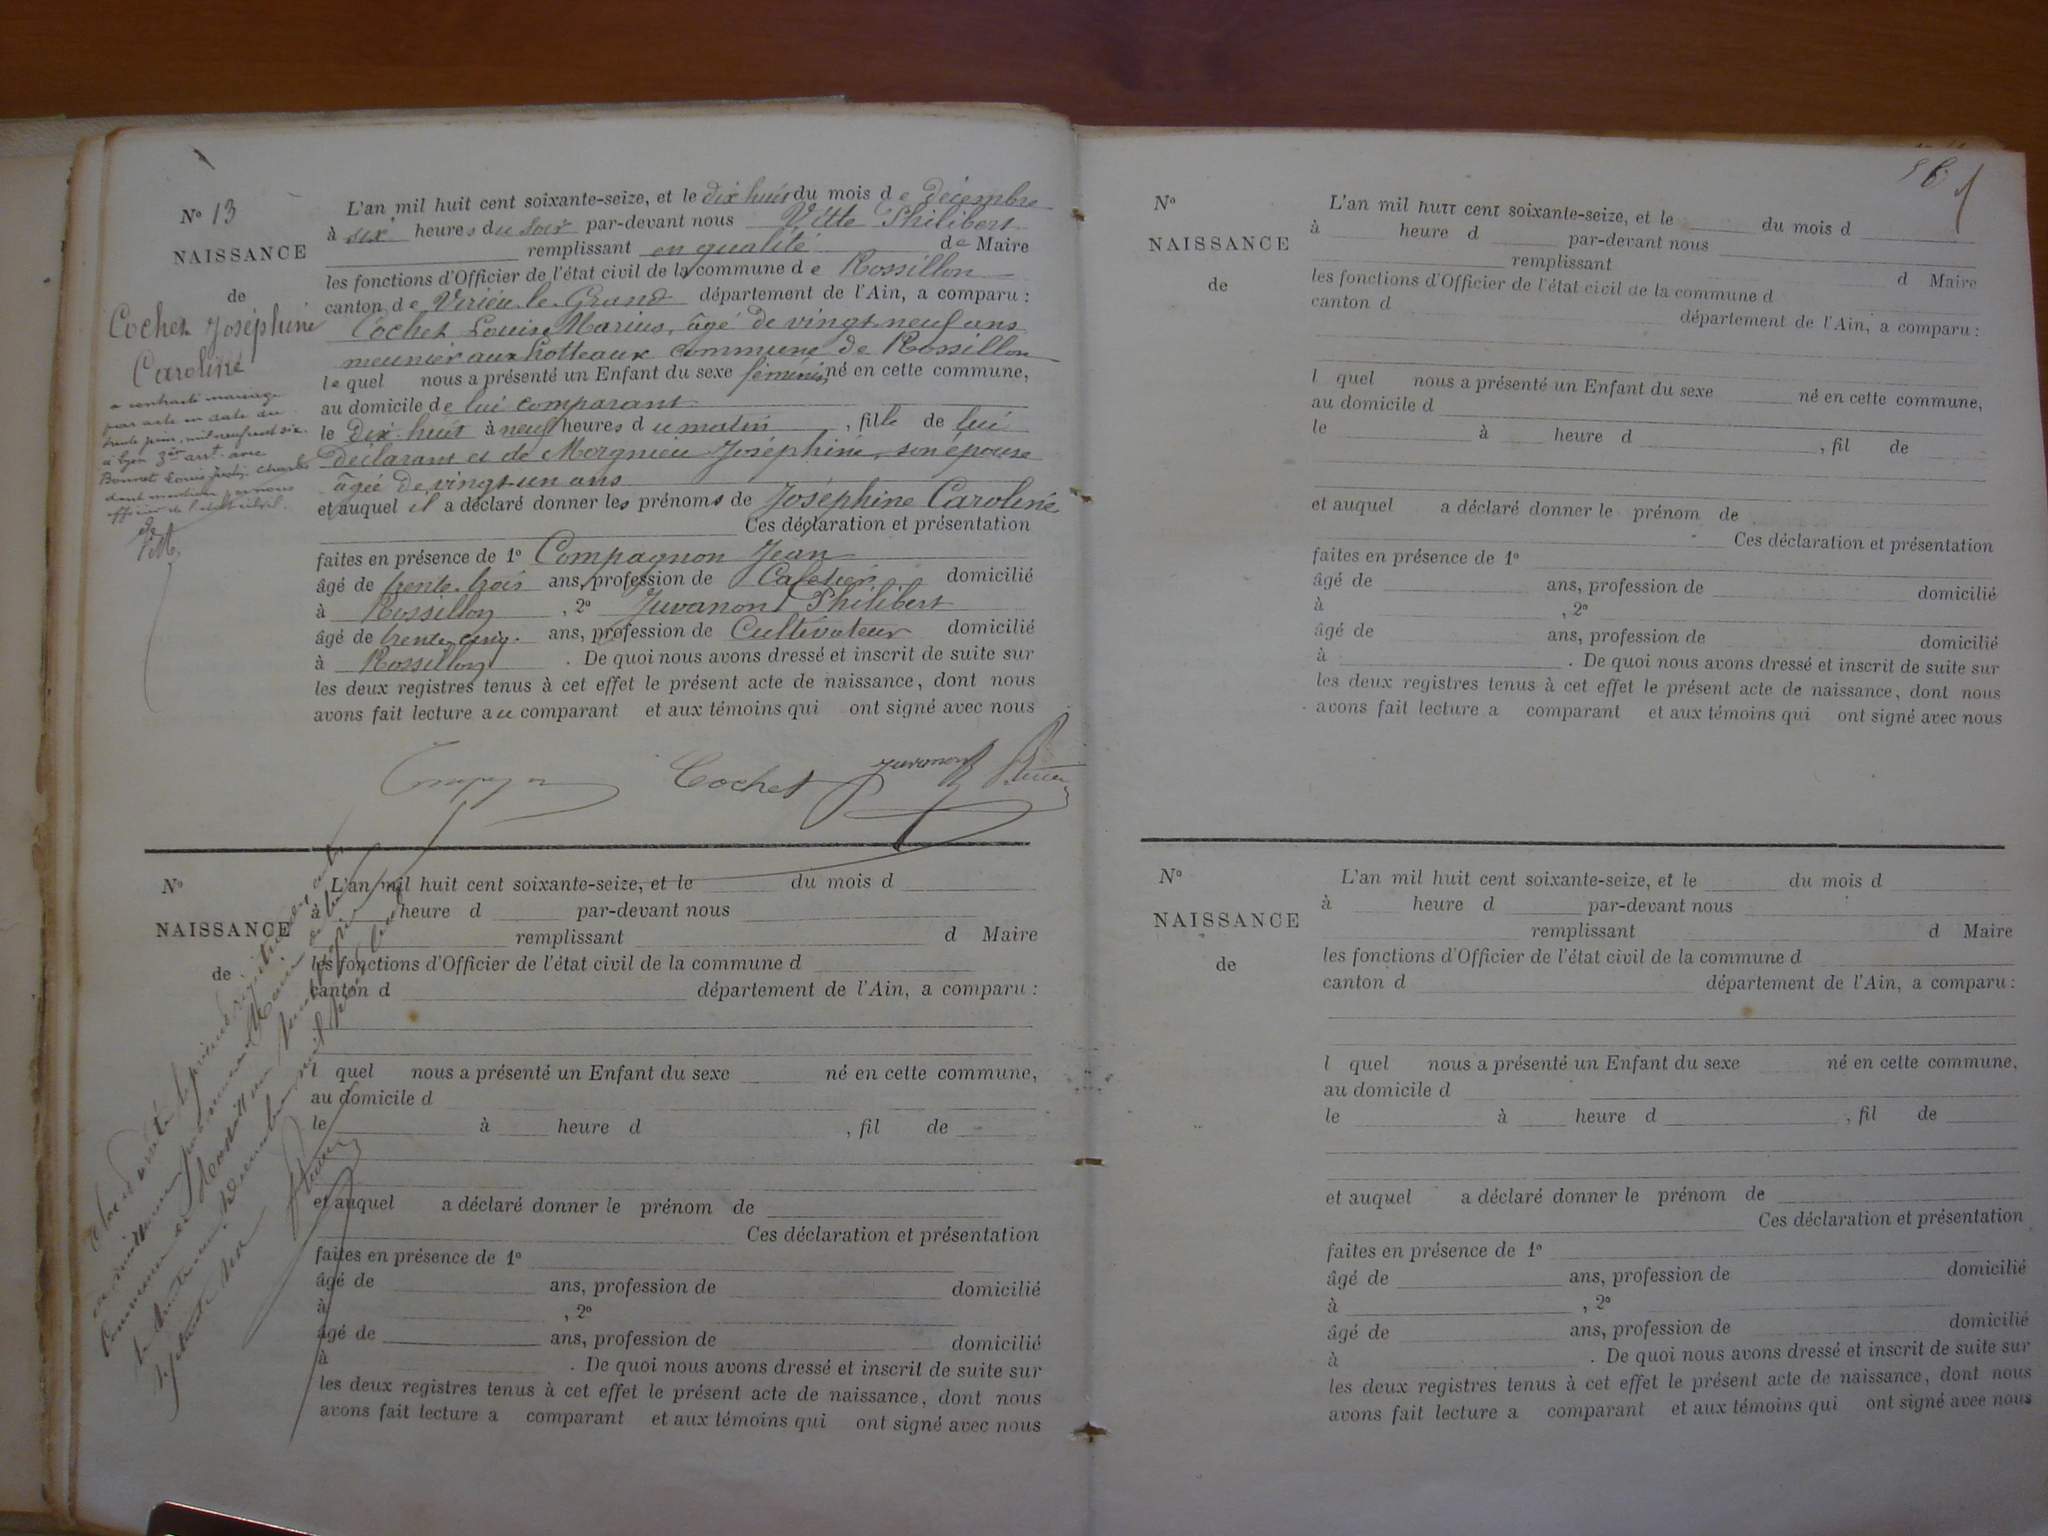 N° 13
NAISSANCE
de
Cochet Joséphine
Caroline
a contracté mariage
par acte en date du
trente juin, mil neuf cent six
à Lyon 3me arrt. avec
Bonnet Louis Justin Charles
dont mention par nous
officier de l'état civil.
L'an mil huit cent soixante-seize, et le dix huit du mois de décembre
à six heures du soir par-devant nous Vitte Philibert
remplissant en qualité de Maire
les fonctions d'Officier de l'état civil de la commune de Rossillon
canton de Virieu-le-Grand département de l'Ain, a comparu :
Cochet Louis Marius, âgé de vingt neuf ans
meunier aux hotteaux commune de Rossillon
lequel nous a présenté un Enfant du sexe féminin, né en cette commune,
au domicile de lui comparant
le dix-huit à neuf heures du matin, fille de lui
déclarant et de Morgnieu Joséphine, son épouse
âgée de vingt-un ans
et auquel il a déclaré donner les prénoms de Joséphine Caroline
Ces déclaration et présentation
faites en présence de 1° Compagnon Jean
âgé de trente-trois ans, profession de Cafetier domicilié
à Rossillon, 2° Juvanon Philibert
âgé de trente-cinq ans, profession de Cultivateur domicilié
à Rossillon. De quoi nous avons dressé et inscrit de suite sur
les deux registres tenus à cet effet le présent acte de naissance, dont nous
avons fait lecture au comparant et aux témoins qui ont signé avec nous
Cochet Juvanon
N°
NAISSANCE
de
L'an mil huit cent soixante-seize, et le du mois d
à heure d par-devant nous
remplissant d Maire
les fonctions d'Officier de l'état civil de la commune d
canton d département de l'Ain, a comparu :
l quel nous a présenté un Enfant du sexe né en cette commune,
au domicile d
le à heure d , fil de
et auquel a déclaré donner le prénom de
Ces déclaration et présentation
faites en présence de 1°
âgé de ans, profession de domicilié
à , 2°
âgé de ans, profession de domicilié
à . De quoi nous avons dressé et inscrit de suite sur
les deux registres tenus à cet effet le présent acte de naissance, dont nous
avons fait lecture a comparant et aux témoins qui ont signé avec nous
Clos et arrêté le présent registre
par nous Maire de la
commune de Rossillon
le trente un Décembre mil huit cent
soixante seize
N°
NAISSANCE
de
L'an mil huit cent soixante-seize, et le du mois d
à heure d par-devant nous
remplissant d Maire
les fonctions d'Officier de l'état civil de la commune d
canton d département de l'Ain, a comparu :
l quel nous a présenté un Enfant du sexe né en cette commune,
au domicile d
le à heure d , fil de
et auquel a déclaré donner le prénom de
Ces déclaration et présentation
faites en présence de 1°
âgé de ans, profession de domicilié
à , 2°
âgé de ans, profession de domicilié
à . De quoi nous avons dressé et inscrit de suite sur
les deux registres tenus à cet effet le présent acte de naissance, dont nous
avons fait lecture a comparant et aux témoins qui ont signé avec nous
N°
NAISSANCE
de
L'an mil huit cent soixante-seize, et le du mois d
à heure d par-devant nous
remplissant d Maire
les fonctions d'Officier de l'état civil de la commune d
canton d département de l'Ain, a comparu :
l quel nous a présenté un Enfant du sexe né en cette commune,
au domicile d
le à heure d , fil de
et auquel a déclaré donner le prénom de
Ces déclaration et présentation
faites en présence de 1°
âgé de ans, profession de domicilié
à , 2°
âgé de ans, profession de domicilié
à . De quoi nous avons dressé et inscrit de suite sur
les deux registres tenus à cet effet le présent acte de naissance, dont nous
avons fait lecture a comparant et aux témoins qui ont signé avec nous